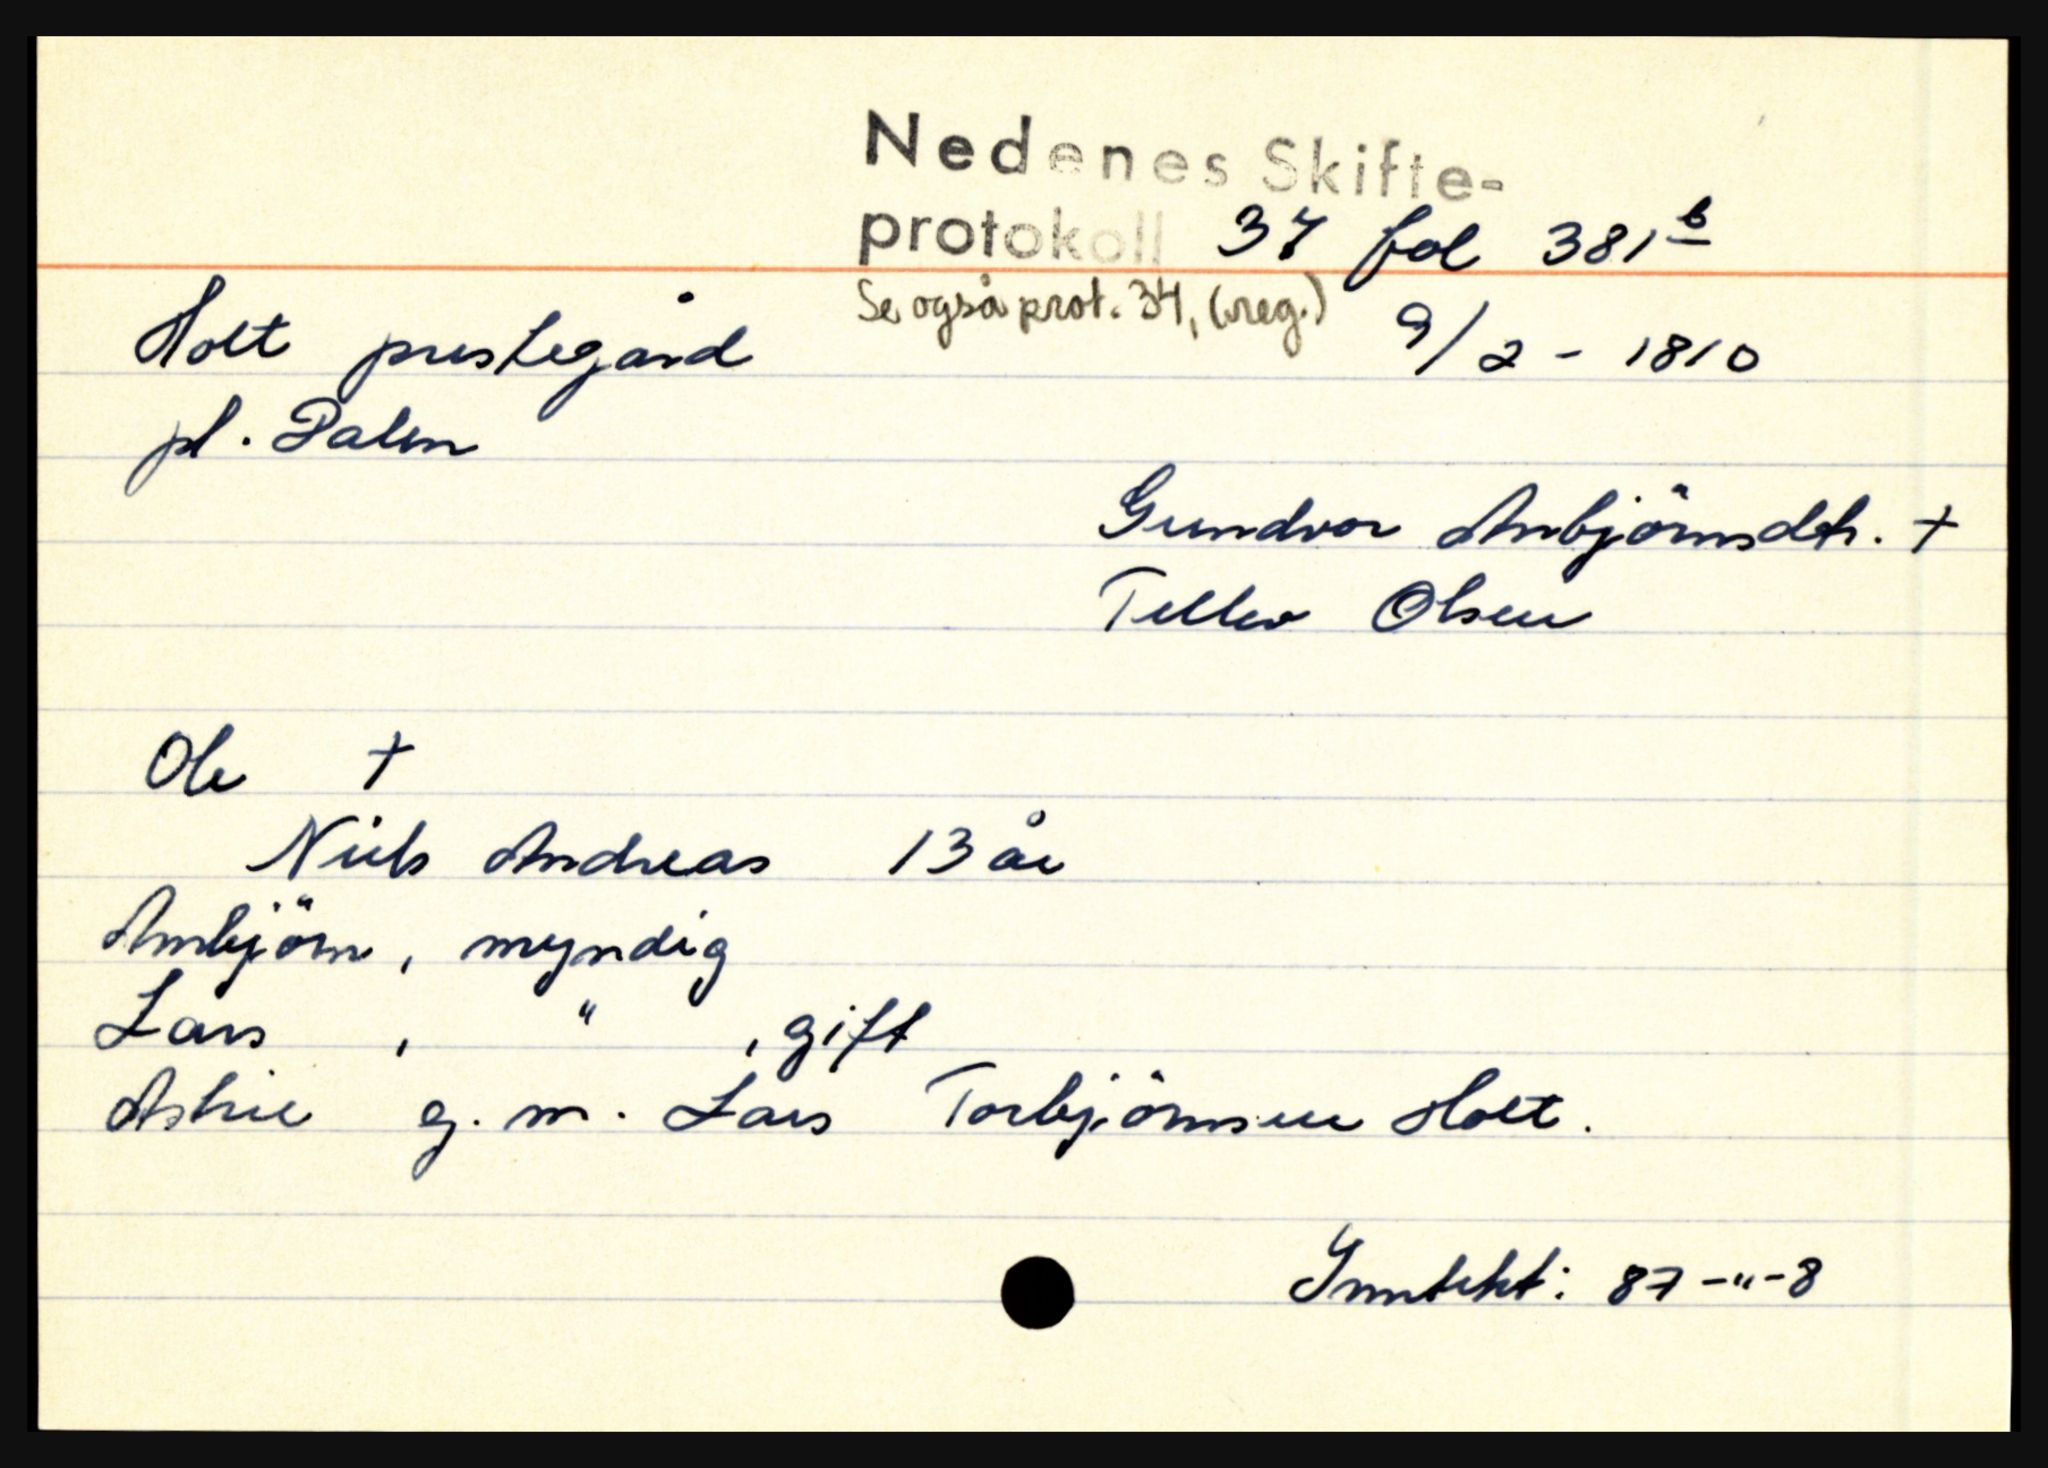 Nedenes Skifte-
protokoll 37 fol 381 b
Se også prot. 34, (reg.)
9/2 - 1810
Holt prestegård
pl. Dalen
Gundvor Ambjörnsdtr. +
Tellev Olsen
Ole +
Niels Andreas 13 år
Ambjörn, myndig
Lars , " , gift
Astrie g. m. Lars Torbjörnsen Holt.
Inntekt: 87-"-8